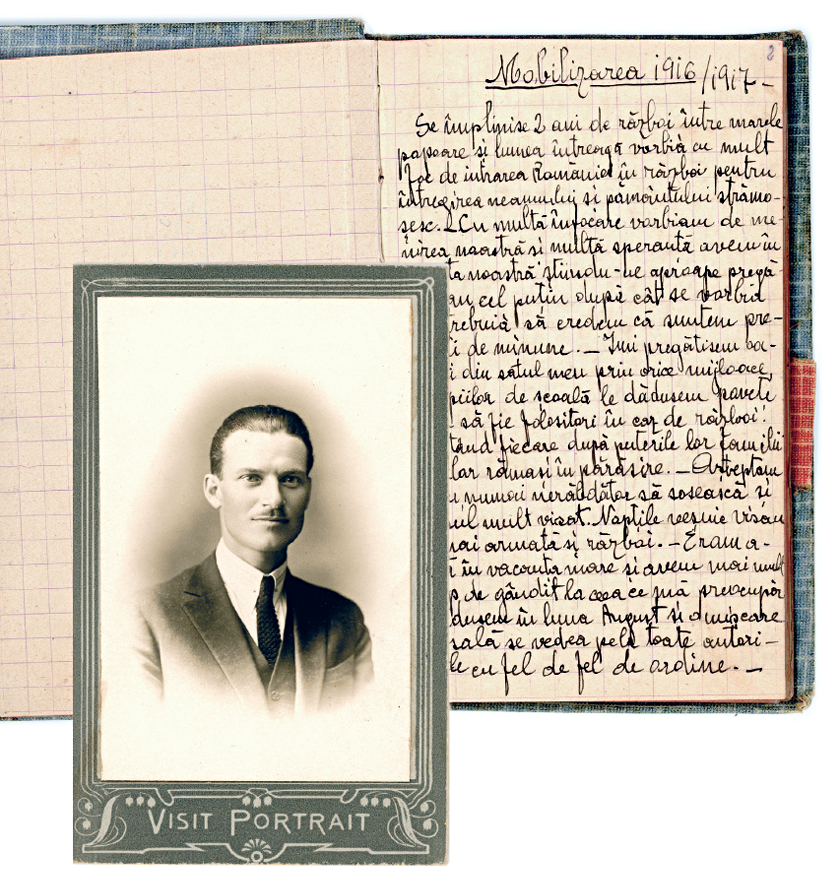 2
Mobilizarea 1916/1917-
Se împlinise 2 ani de război între marele
popoare si lumea întreagă vorbia cu mult
foc de intrarea României în război pentru
întregirea neamului si pământului strămo-
sesc. Cu multă înfocare vorbiam de me-
nirea noastră si multă speranță aveam în
ta noastră știindu-ne aproape pregă-
cel putin după cât se vorbia
să credem că suntem pre-
i de minune. — Imi pregătisem
i din satul meu prin orice mijloace,
de scoală le dădusem
să fie folositori în caz de războiu!
fiecare după puterile lor familii
lor rămasi în părăsire. — Asteptam
numai nerăbdător să sosească si
mult visat. Noptile
armată si război. — Eram a-
în vacanta mare si aveam mai mult
de gândit la ceea ce mă preocupa
în luna August si o miscare
se vedea pela toate autori-
cu fel de fel de ordine. —
VISIT PORTRAIT